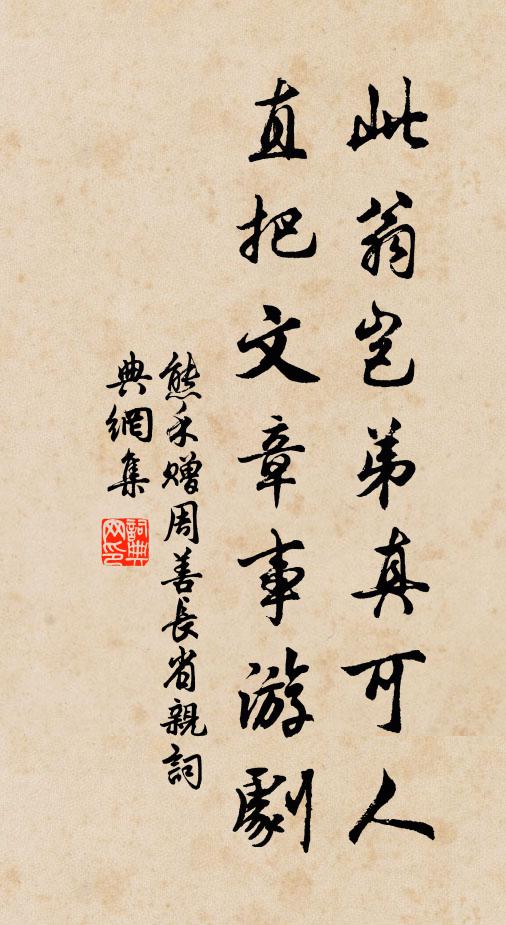 此翁岂弟真可人
直把文章事游劇
熊禾贈周善長省親詞
典網集
詞典網印